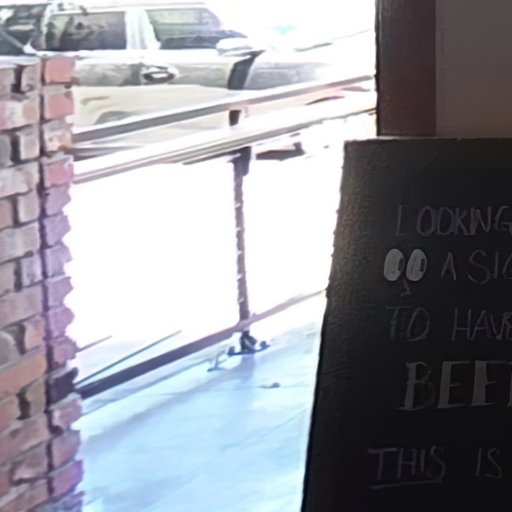 LOOKING
A SIG
TO HAVE
BEE
THIS IS